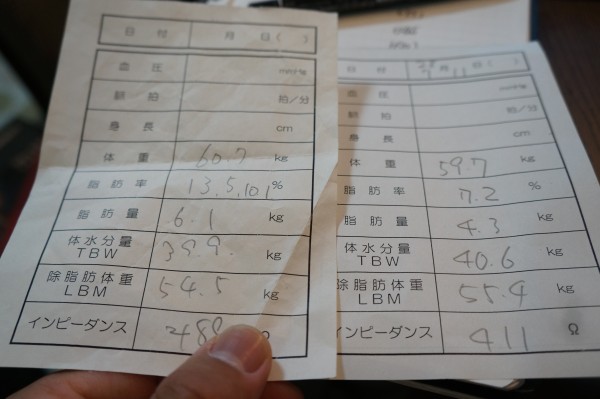 日付 月 日( )
血圧 mmHg
脈拍 拍/分
身長 cm
体重 60.7 kg
脂肪率 13.5,10.1 %
脂肪量 6.1 kg
体水分量 TBW 39.9. kg
除脂肪体重 LBM 54.5 kg
インピーダンス Ω
日付 月 11日( )
血圧 mmHg
脈拍 拍/分
身長 cm
体重 59.7 kg
脂肪率 7.2 %
脂肪量 4.3 kg
体水分量 TBW 40.6 kg
除脂肪体重 LBM 55.4 kg
インピーダンス 411 Ω